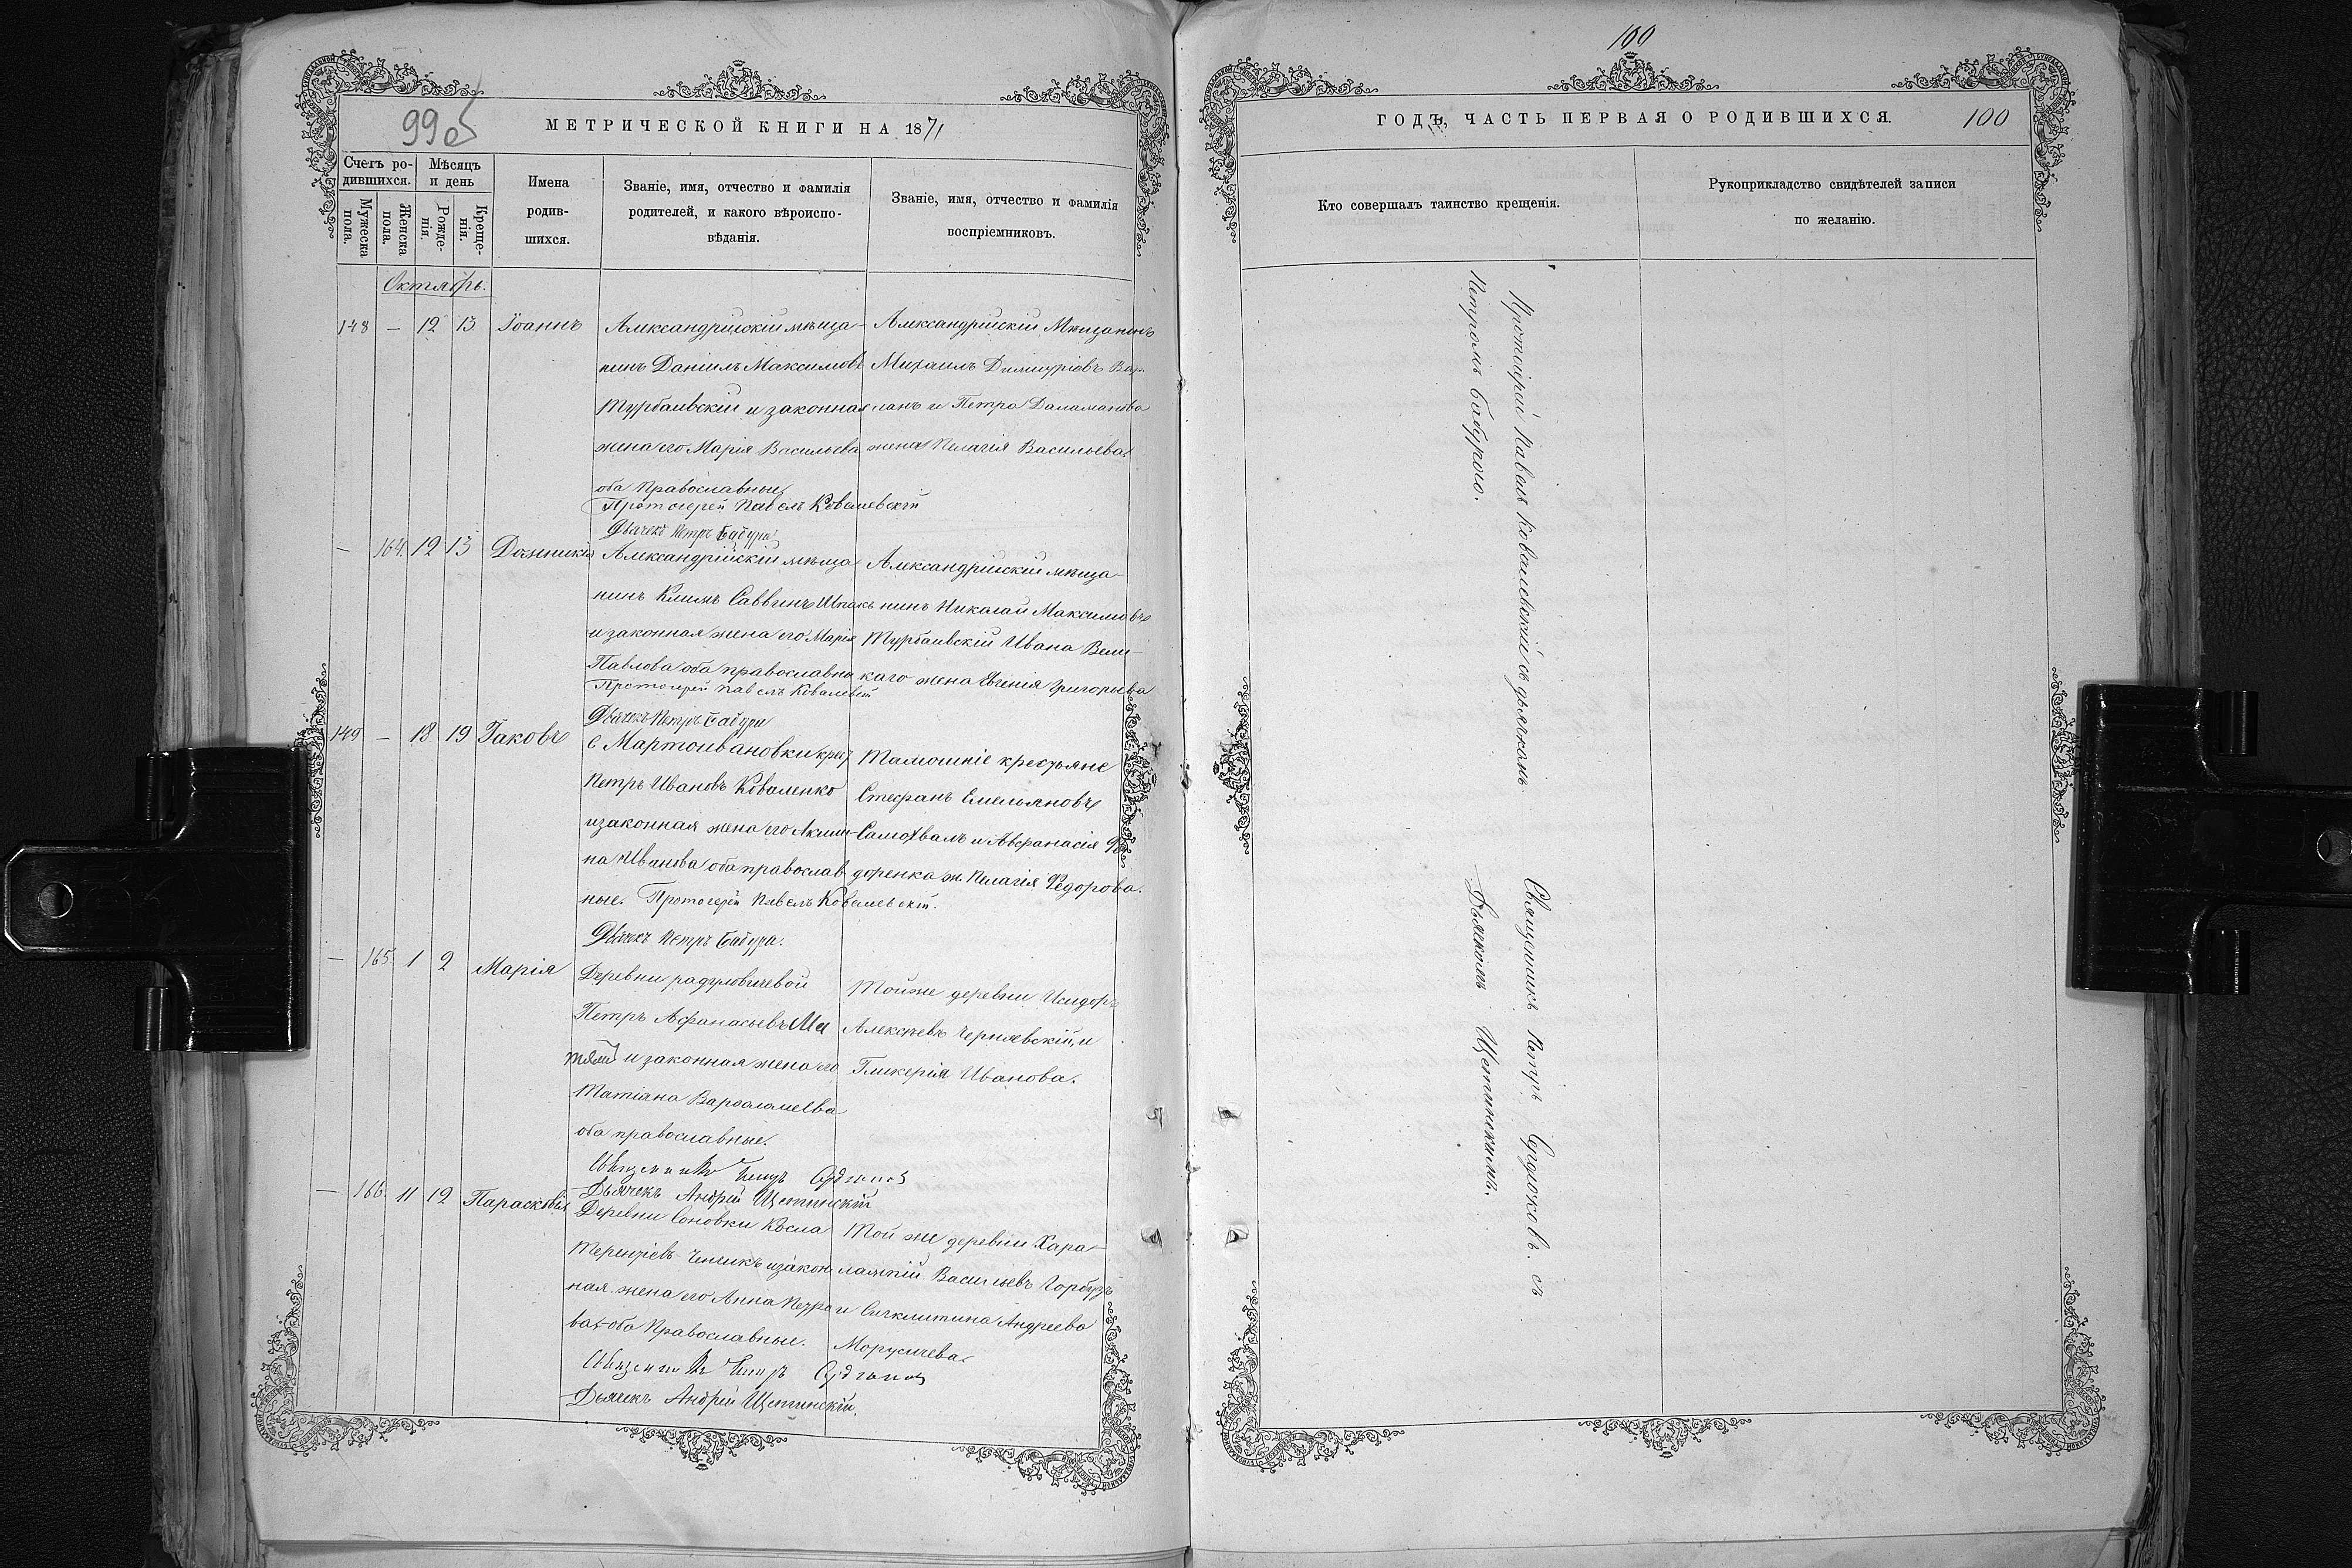 99об
МЕТРИЧЕСКОЙ КНИГИ НА 1871
Счетъ ро-
дившихся.
Мужеска пола.
Женска пола.
Мѣсяцъ
и день
Рожде-
нія.
Креще-
нія.
Имена
родив-
шихся.
Званіе, имя, отчество и фамилія
родителей, и какого вѣроиспо-
вѣданія.
Званіе, имя, отчество и фамилія
воспріемниковъ.
Октябрь.
148 — 12 13 Іоаннъ
Александрійскій мѣща-
нинъ Даніилъ Максимовъ
Турбаивскій и законная
жена его Марія Васильева
оба Православные
Протоіерей Павелъ Ковалевскій
Дьячекъ Петръ Бабура
Александрійскій Мѣщанинъ
Михаилъ Димитріовъ
и Петра Даламанова
жена Пелагія Васильева
— 164. 12 13 Домникія
Александрійскій мѣща-
нинъ Климъ Саввинъ Шпакъ
и законная жена его Марія
Павлова оба православны
Протоіерей Павелъ Ковалевскій
Дьячекъ Петръ Бабура
Александрійскій мѣща-
нинъ Николай Максимовъ
Турбаивскій Ивана Вели-
каго жена Евгенія Григорьева
149 — 18 19 Іаковъ
с Мартоивановки крест
Петръ Ивановъ Коваленко
и законная жена его Акили-
на Иванова оба православ
ные. Протоіерей Павелъ Ковалевскій.
Дьячекъ Петръ Бабура.
Тамошніе крестьяне
Стефанъ Емельяновъ
Самохвалъ и Афанасія Фе
доренка ж. Пелагія Федорова.
— 165. 1 2 Марія
Деревни Радуловичевой
Петръ Афанасьевъ Ма
и законная жена его
Татіана Варфаломеева
оба православные.
Священникъ Петръ
Дьячекъ Андрей Щетинскій
Той же деревни Исидоръ
Алексѣевъ Чернявскій, и
Гликерія Иванова.
— 166. 11 12 Параскевія
Деревни Соновки Косма
Терентіевъ и закон
ная жена его Анна Петро
ва, оба Православные.
Священникъ Петръ
Дьячекъ Андрей Щетинскій.
Той же деревни Хара-
лампій Васильевъ Горбузъ
и Синклитина Андреева
Морусичева.
100
ГОДЪ, ЧАСТЬ ПЕРВАЯ О РОДИВШИХСЯ.
100
Кто совершалъ таинство крещенія.
Рукоприкладство свидѣтелей записи
по желанію.
Протоіерей Павелъ Ковалевскій съ дьячкомъ
Петромъ Бабурою.
Священникъ Петръ Сердюковъ. съ
Дьячкомъ Щетинскимъ.